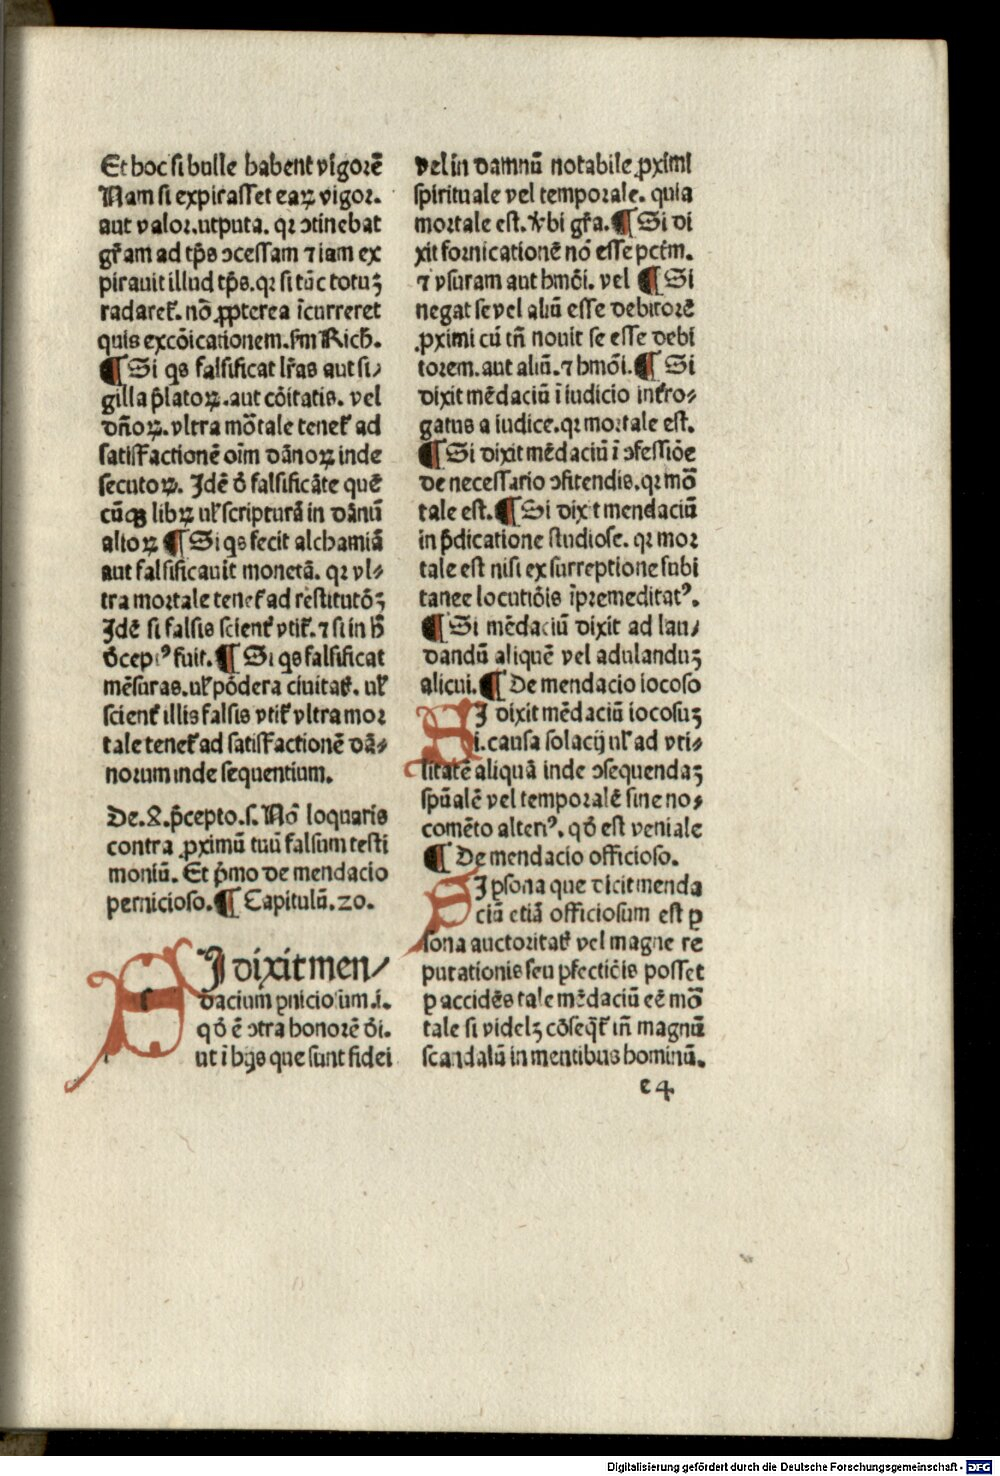 Et hoc si bulle habent vigorē
Nam si expirasset eaꝝ vigor.
aut valor.utputa. qꝛ ↄtinebat
gr̄am ad tp̄s ↄcessam ⁊ iam ex
pirauit illud tp̄s.qꝛ si tūc totuꝫ
radaret᷑. nō ꝓpterea īcurreret
quis excōicationem.ſm Rich.
¶ Si qs falsificat lr̄as aut si⸗
gilla p̄latoꝝ.aut cōitatis. vel
dn̄oꝝ.vltra mōtale tenet᷑ ad
satisfactionē oīm dānoꝝ inde
secutoꝝ. Idē ð falsificāte quē
cūqꝫ libꝝ ul᷑ scripturā in dānū
alioꝝ ¶ Si qs fecit alchamiā
aut falsificauit monetā. qꝛ vl⸗
tra mortale tenet᷑ ad restitutōꝫ
Idē si falsis scient᷑ vtit᷑.⁊ si in h̄
ðcept᷒ fuit.¶ Si qs falsificat
mēsuras.ul᷑ pōdera ciuitat᷑. ul᷑
scient᷑ illis falsis vtit᷑ vltra moꝛ
tale tenet᷑ ad satisfactionē dā⸗
norum inde sequentium.
De.8.p̄cepto.s.Nō loquaris
contra ꝓximū tuū falsum testi
moniū. Et p̄mo de mendacio
pernicioso.¶ Capitulū.20.
SI dixit men⸗
dacium ꝑniciosum.i.
qð ē ↄtra honorē ði.
ut ī hijs que sunt fidei
vel in damnū notabile ꝓximi
spirituale vel temporale. quia
mortale est.vbi gr̄a.¶ Si di
xit fornicationē nō esse pctm̄.
⁊ vsuram aut hmōi. vel ¶ Si
negat se vel aliū esse debitorē
ꝓximi cū tn̄ nouit se esse debi
torem.aut aliū.⁊ hmōi.¶ Si
dixit mēdaciū ī iudicio int᷑ro⸗
gatus a iudice.qꝛ mortale est.
¶ Si dixit mēdaciū ī ↄfessiōe
de necessario ↄfitendis.qꝛ mō
tale est.¶ Si dixit mendaciū
in p̄dicatione studiose. qꝛ moꝛ
tale est nisi ex surreptione subi
tanee locutiōis īpremeditat᷒.
¶ Si mēdaciū dixit ad lau⸗
dandū aliquē vel adulanduꝫ
alicui.¶ De mendacio iocoso
SI dixit mēdaciū iocosuꝫ
i.causa solacij ul᷑ ad vti⸗
litatē aliquā inde ↄsequendaꝫ
spūalē vel temporalē sine no⸗
comēto alteri᷒. qð est veniale
¶ De mendacio officioso.
SI ꝑsona que dicit menda
ciū etiā officiosum est ꝑ
sona auctoritat᷑ vel magne re
putationis seu ꝑfectiōis posset
ꝑ accidēs tale mēdaciū eē mō
tale si videlꝫ cōseqt᷑ in̄ magnū
scandalū in mentibus hominū.
e4
Digitalisierung gefördert durch die Deutsche Forschungsgemeinschaft - DFG